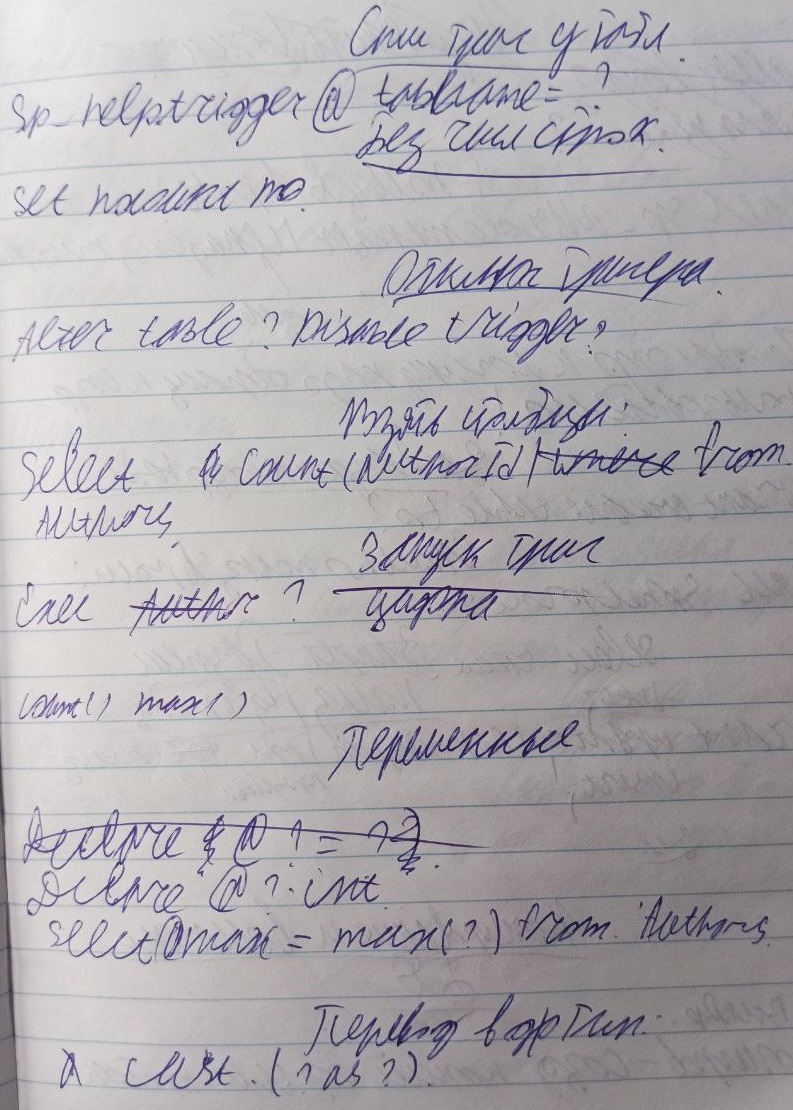 Спис триг у табл.
Sp_helptrigger @ tabname = ?
Без числ строк.
Set nocount no.
Отключ тригера.
Alter table ? Disable trigger ?
Взять столбцы.
Select Count (AuthorId) where from
Authors
Запуск триг
Exec Author ? цифра
Count() max()
Переменные
Declare @ ? = ?
Declare @ ? int
Select @max = max(?) from Authors
Перевод в др тип.
cast. (? as ?).